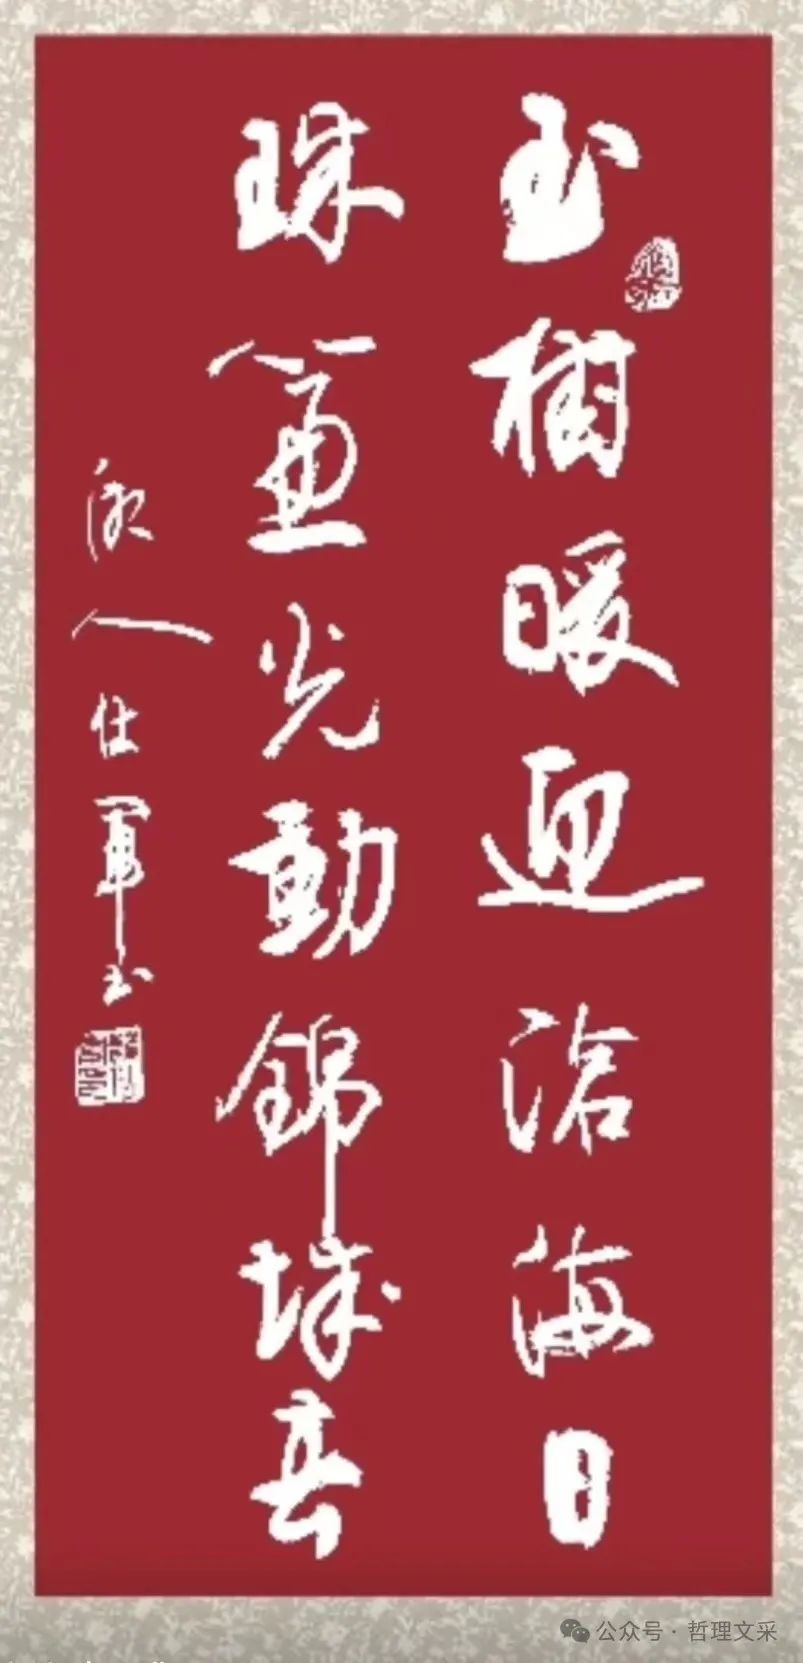 玉樹暖迎滄海日
珠簾光動錦城春
人仕軍书
公众号 · 哲理文采